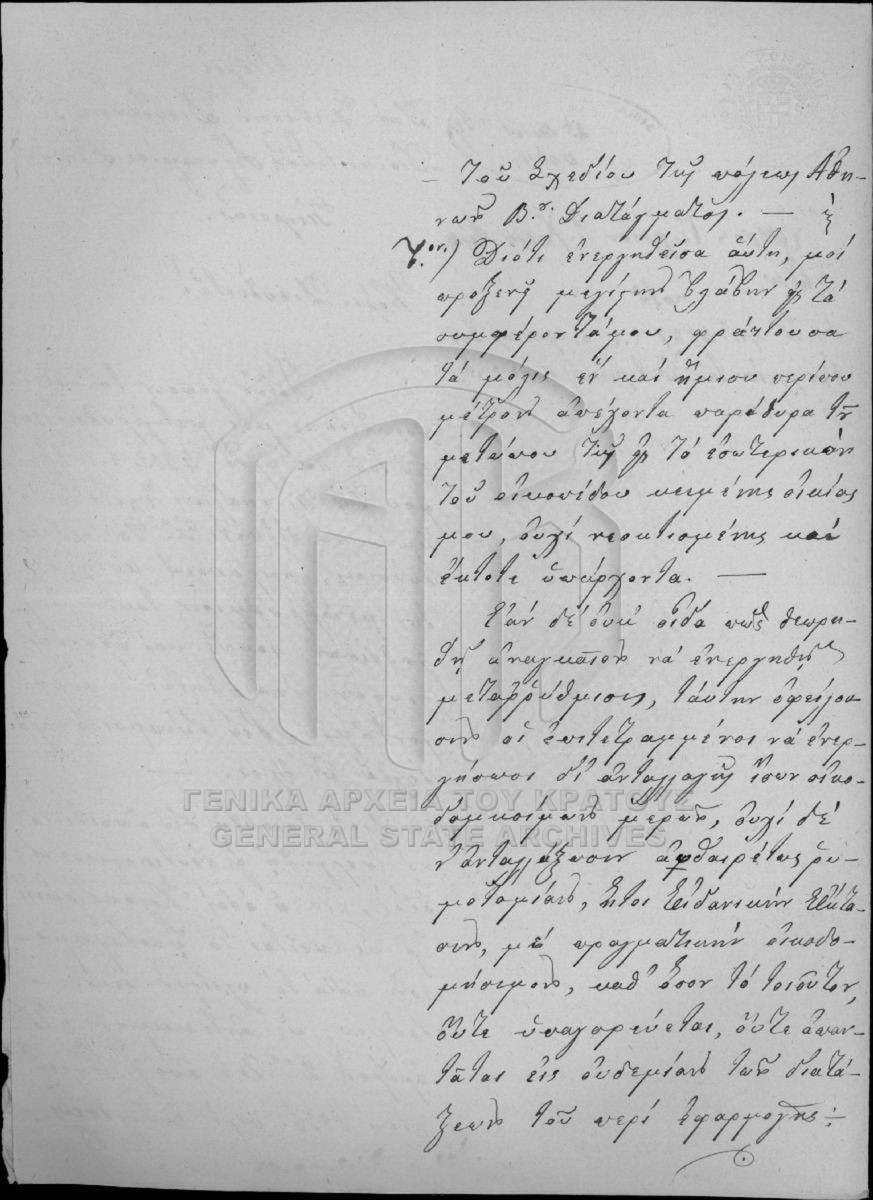 — τοῦ Σχεδίου τῆς πόλεως Ἀθη-
νῶν Β. Διατάγματος. —
Διότι ἐνεργηθεῖσα αὕτη, μοὶ
προξενεῖ μεγίστην βλάβην εἰς τὰ
συμφέροντά μου, φράττουσα
τὰ μόλις ἓν καὶ ἥμισυ περίπου
μέτρον ἀπέχοντα παράθυρα τοῦ
μετώπου τῆς εἰς τὸ ἐσωτερικὸν
τοῦ οἰκοπέδου κειμένης οἰκίας
μου, οὐχὶ νεοκτισμένης καὶ
ἔκτοτε ὑπάρχοντα. —
Ἐὰν δὲ οὐκ οἶδα πῶς θεωρη-
θῇ ἀναγκαῖον νὰ ἐνεργηθῇ
μεταρρύθμισις, ταύτην ὀφείλου-
σιν οἱ ἐπιτετραμμένοι νὰ ἐνερ-
γήσωσι δι' ἀνταλλαγῆς ἴσων οἰκο-
δομησίμων μερῶν, οὐχὶ δὲ
ν' ἀνταλλάξωσιν αὐθαιρέτως ῥυ-
μοτομίαν, ἤτοι ἰδανικὴν ἔκτα-
σιν, μὲ πραγματικὴν οἰκοδο-
μήσιμον, καθ' ὅσον τὸ τοιοῦτον,
οὔτε ὑπαγορεύεται, οὔτε ἀπαν-
τᾶται εἰς οὐδεμίαν τῶν διατά-
ξεων τοῦ περὶ ἐφαρμογῆς ÷
ΓΕΝΙΚΑ ΑΡΧΕΙΑ ΤΟΥ ΚΡΑΤΟΥΣ
GENERAL STATE ARCHIVES